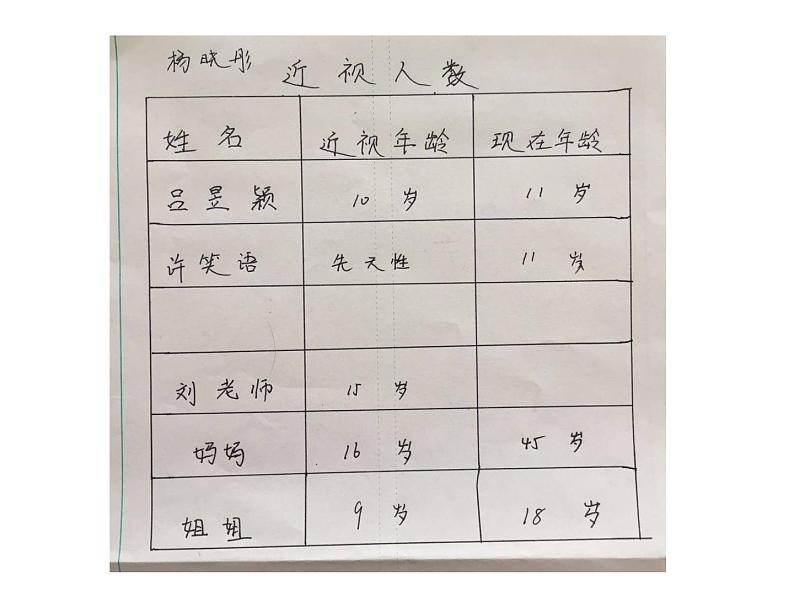 杨晓彤 近视人数
姓名 近视年龄 现在年龄
吕昱颖 10岁 11岁
许笑语 先天性 11岁
刘老师 15岁
妈妈 16岁 45岁
姐姐 9岁 18岁